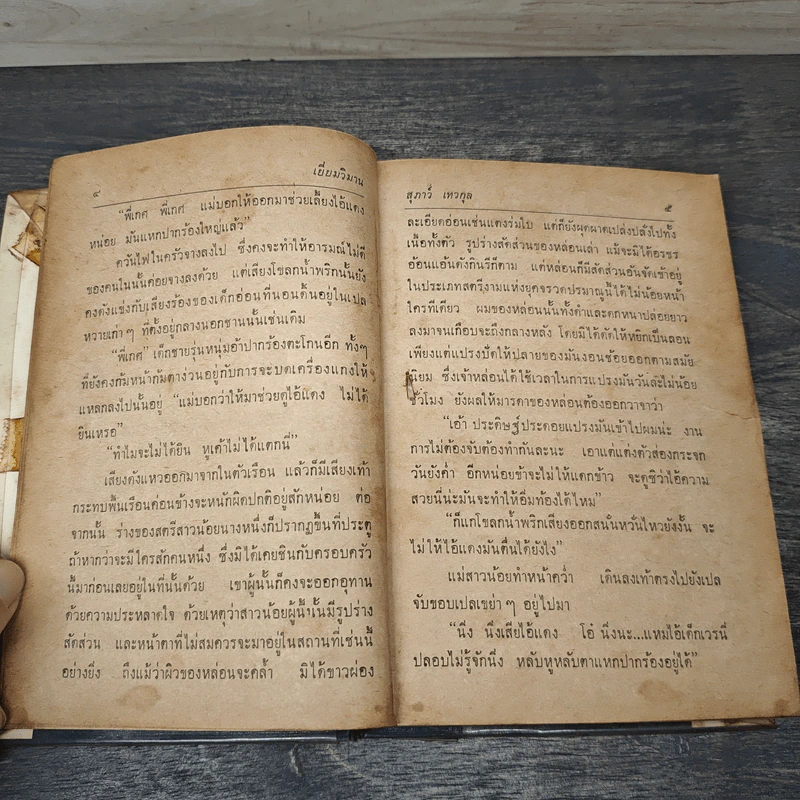 ๔
เยี่ยมวิมาน
“พี่เกศ พี่เกศ แม่บอกให้ออกมาช่วยเลี้ยงไอ้แดง
หน่อย มันแหกปากร้องใหญ่แล้ว”
ควันไฟในครัวจางลงไป ซึ่งคงจะทำให้อารมณ์ไม่ดี
ของคนในนั้นค่อยจางลงด้วย แต่เสียงโขลกน้ำพริกนั้นยัง
คงดังแข่งกับเสียงร้องของเด็กอ่อนที่นอนดิ้นอยู่ในเปล
หวายเก่าๆ ที่ตั้งอยู่กลางนอกชานนั้นเช่นเดิม
“พี่เกศ” เด็กชายรุ่นหนุ่มอ้าปากร้องตะโกนอีก ทั้งๆ
ที่ยังคงก้มหน้าก้มตาง่วนอยู่กับการจะบดเครื่องแกงให้
แหลกลงไปนั้นอยู่ “แม่บอกว่าให้มาช่วยดูไอ้แดง ไม่ได้
ยินเหรอ”
“ทำไมจะไม่ได้ยิน หูเค้าไม่ได้แตกนี่”
เสียงดังแหวออกมาจากในตัวเรือน แล้วก็มีเสียงเท้า
กระทบพื้นเรือนค่อนข้างจะหนักผิดปกติอยู่สักหน่อย ต่อ
จากนั้น ร่างของสตรีสาวน้อยนางหนึ่งก็ปรากฏขึ้นที่ประตู
ถ้าหากว่าจะมีใครสักคนหนึ่ง ซึ่งมิได้เคยชินกับครอบครัว
นี้มาก่อนเลยอยู่ในที่นั้นด้วย เขาผู้นั้นก็คงจะออกอุทาน
ด้วยความประหลาดใจ ด้วยเหตุว่าสาวน้อยผู้นี้นั้นมีรูปร่าง
สัดส่วน และหน้าตาที่ไม่สมควรจะมาอยู่ในสถานที่เช่นนี้
อย่างยิ่ง ถึงแม้ว่าผิวของหล่อนจะคล้ำ มิได้ขาวผ่อง
สุภาว์ เทวกุล
๕
ละเอียดอ่อนเช่นแตงร่มใบ แต่ก็ยังผุดผาดเปล่งปลั่งไปทั้ง
เนื้อทั้งตัว รูปร่างสัดส่วนของหล่อนเล่า แม้จะมิได้อรชร
อ้อนแอ้นดังกินรีก็ตาม แต่หล่อนก็มีสัดส่วนอันจัดเข้าอยู่
ในประเภทสตรีงามแห่งยุคจรวดปรมาณูนี้ได้ไม่น้อยหน้า
ใครทีเดียว ผมของหล่อนนั้นทั้งดำและดกหนาปล่อยยาว
ลงมาจนเกือบจะถึงกลางหลัง โดยมิได้ดัดให้หยิกเป็นลอน
เพียงแต่แปรงปัดให้ปลายของมันงอนช้อยออกตามสมัย
นิยม ซึ่งเจ้าหล่อนได้ใช้เวลาในการแปรงมันวันละไม่น้อย
ชั่วโมง ยังผลให้มารดาของหล่อนต้องออกวาจาว่า
“เอ้า ประดิษฐ์ประดอยแปรงมันเข้าไปผมน่ะ งาน
การไม่ต้องจับต้องทำกันละนะ เอาแต่แต่งตัวส่องกระจก
วันยังค่ำ อีกหน่อยข้าจะไม่ให้แดกข้าว จะดูซิว่าไอ้ความ
สวยนี่น่ะมันจะทำให้อิ่มท้องได้ไหม”
“ก็แกโขลกน้ำพริกเสียงออกสนั่นหวั่นไหวยังงั้น จะ
ไม่ให้ไอ้แดงมันตื่นได้ยังไง”
แม่สาวน้อยทำหน้าคว่ำ เดินลงเท้าตรงไปยังเปล
จับขอบเปลเขย่าๆ อยู่ไปมา
“นิ่ง นิ่งเสียไอ้แดง โอ๋ นิ่งนะ...แหมไอ้เด็กเวรนี่
ปลอบไม่รู้จักนิ่ง หลับหูหลับตาแหกปากร้องอยู่ได้”